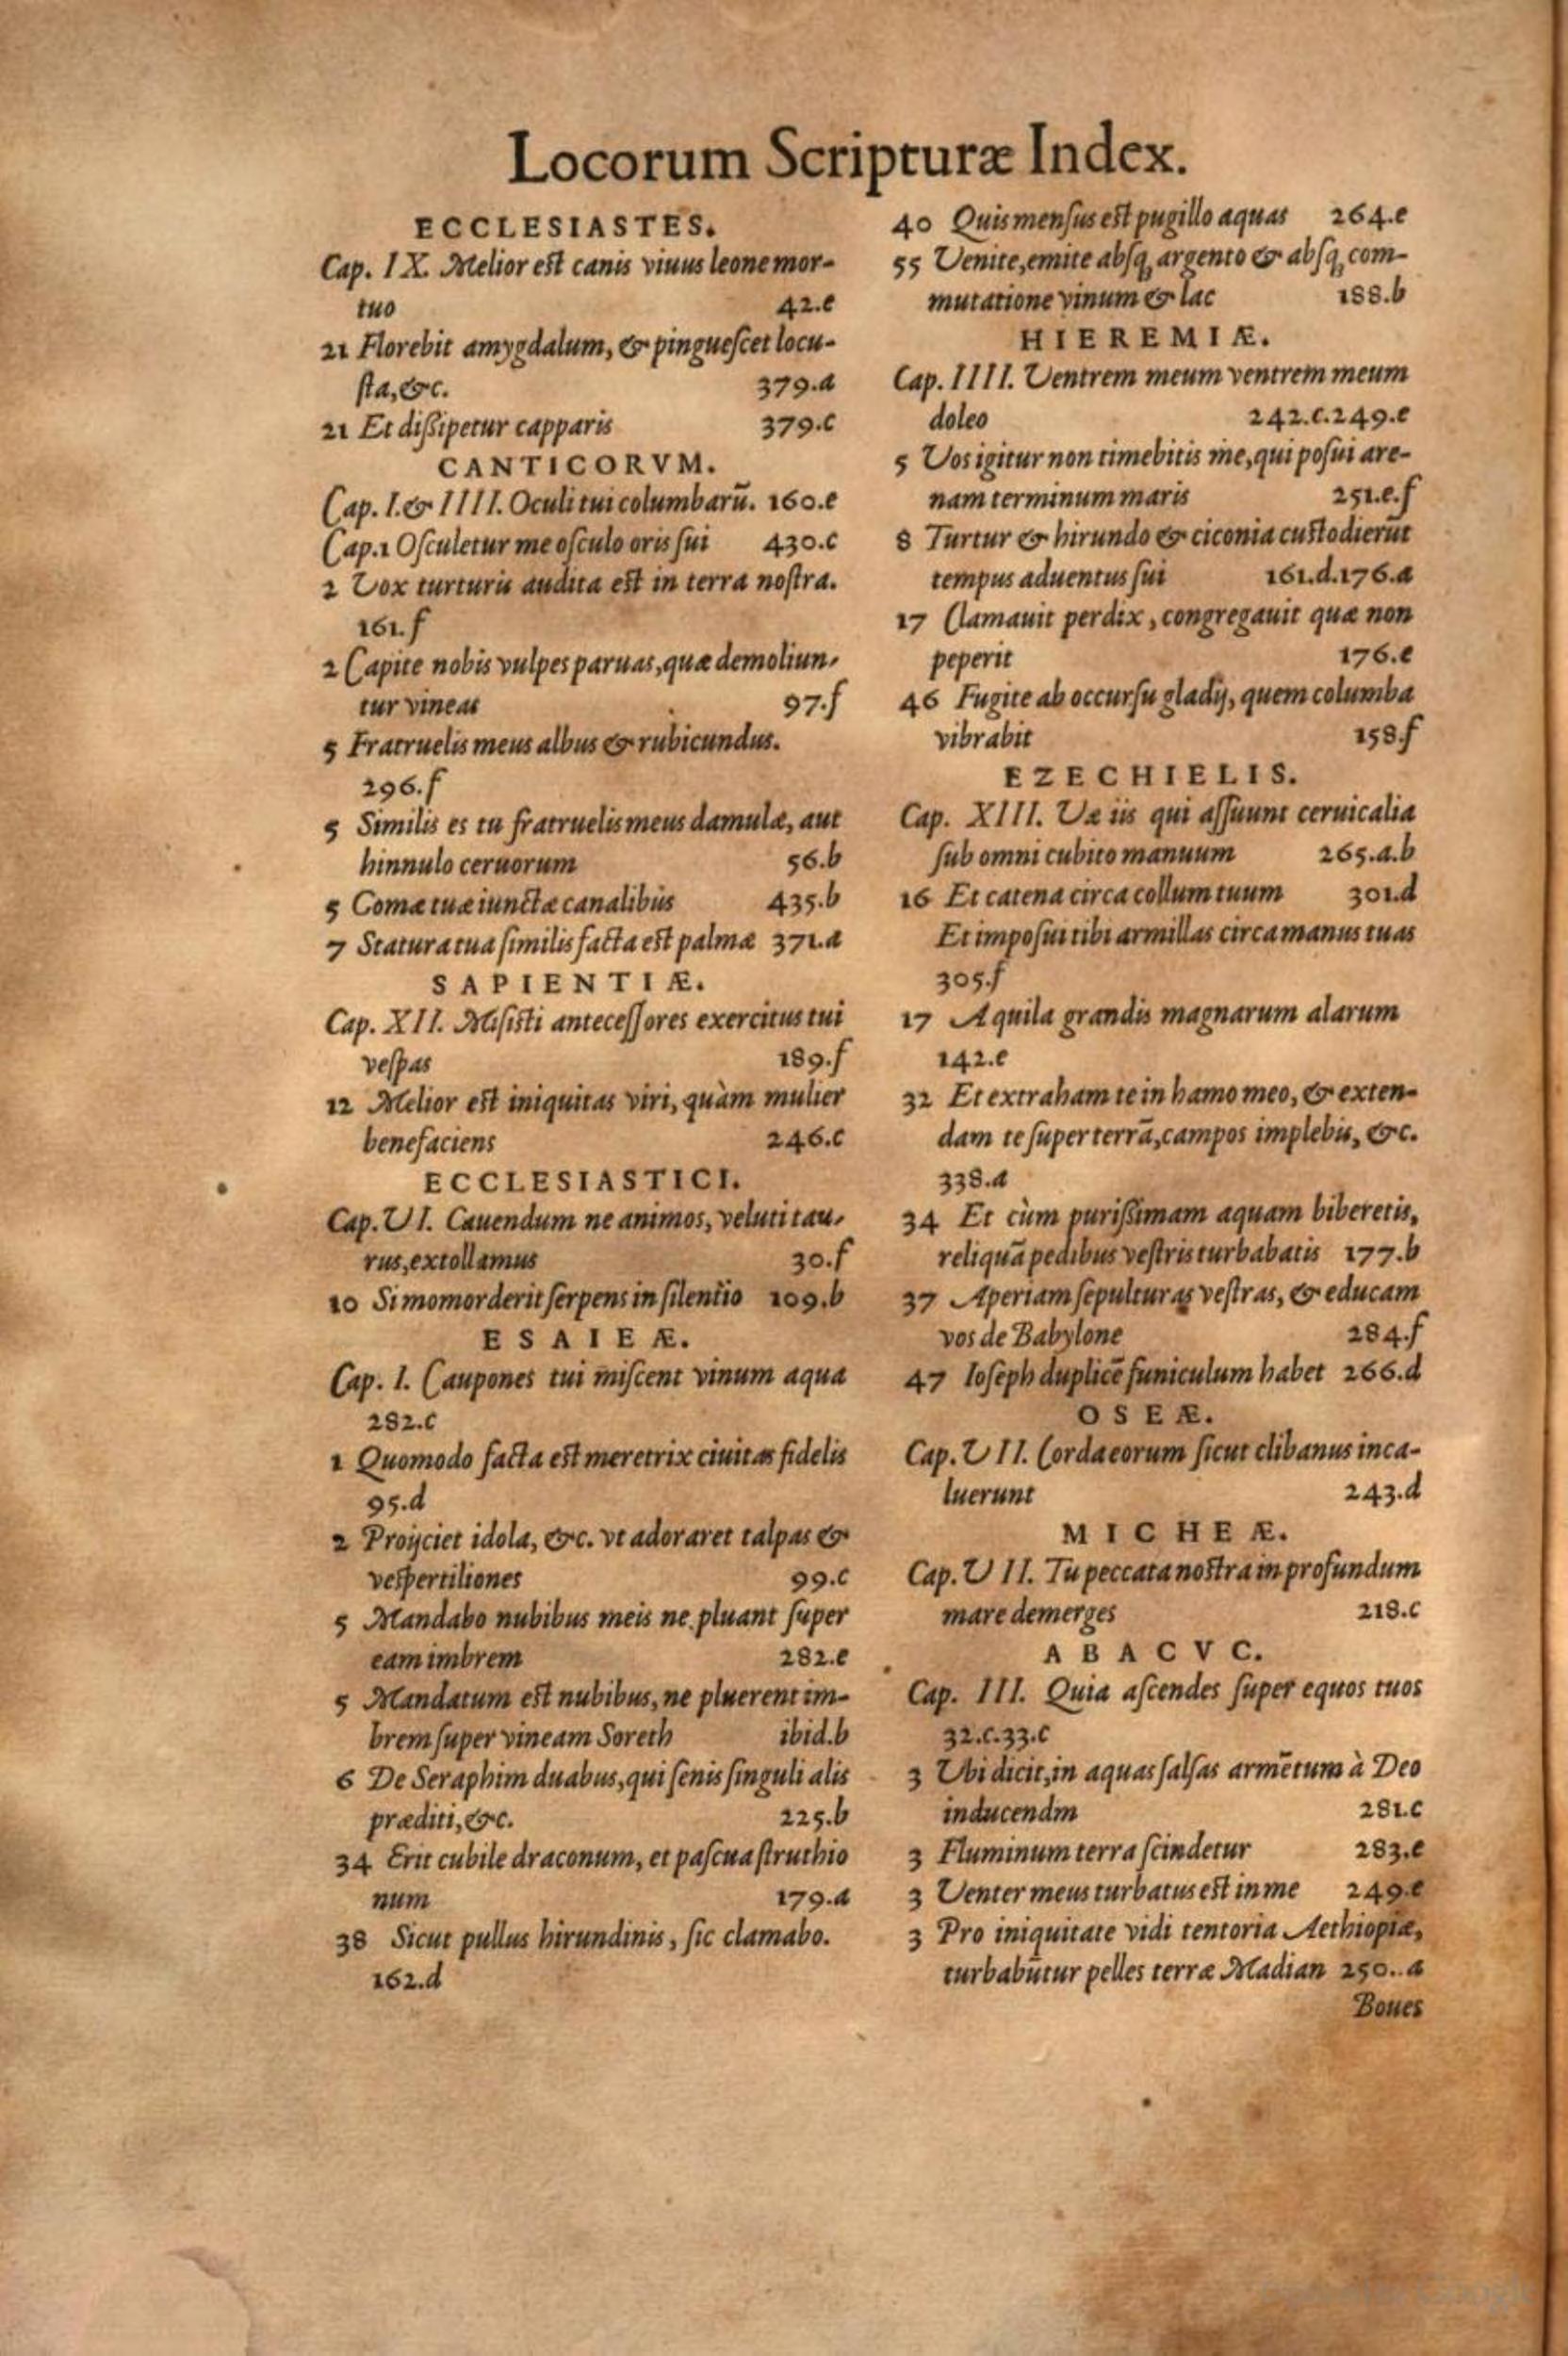 Locorum Scripturæ Index.
ECCLESIASTES.
Cap. IX. Melior est canis viuus leone mor-
tuo 42.e
21 Florebit amygdalum, & pinguescet locu-
sta, &c. 379.a
21 Et dissipetur capparis 379.c
CANTICORVM.
Cap. I. & IIII. Oculi tui columbarũ. 160.e
Cap.1 Osculetur me osculo oris sui 430.c
2 Vox turturis audita est in terra nostra.
161.f
2 Capite nobis vulpes paruas, quæ demoliun-
tur vineas 97.f
5 Fratruelis meus albus & rubicundus.
296.f
5 Similis es tu fratruelis meus damulæ, aut
hinnulo ceruorum 56.b
5 Comæ tuæ iunctæ canalibus 435.b
7 Statura tua similis facta est palmæ 371.a
SAPIENTIÆ.
Cap. XII. Misisti antecessores exercitus tui
vespas 189.f
12 Melior est iniquitas viri, quàm mulier
benefaciens 246.c
ECCLESIASTICI.
Cap. VI. Cauendum ne animos, veluti tau-
rus, extollamus 30.f
10 Si momorderit serpens in silentio 109.b
ESAIEÆ.
Cap. I. Caupones tui miscent vinum aqua
282.c
1 Quomodo facta est meretrix ciuitas fidelis
95.d
2 Proijciet idola, &c. vt adoraret talpas &
vespertiliones 99.c
5 Mandabo nubibus meis ne pluant super
eam imbrem 282.e
5 Mandatum est nubibus, ne pluerent im-
brem super vineam Soreth ibid.b
6 De Seraphim duabus, qui senis singuli alis
præditi, &c. 225.b
34 Erit cubile draconum, et pascua struthio
num 179.a
38 Sicut pullus hirundinis, sic clamabo.
162.d
40 Quis mensus est pugillo aquas 264.e
55 Venite, emite absq; argento & absq; com-
mutatione vinum & lac 188.b
HIEREMIÆ.
Cap. IIII. Ventrem meum ventrem meum
doleo 242.c.249.e
5 Vos igitur non timebitis me, qui posui are-
nam terminum maris 251.e.f
8 Turtur & hirundo & ciconia custodierũt
tempus aduentus sui 161.d.176.a
17 Clamauit perdix, congregauit quæ non
peperit 176.e
46 Fugite ab occursu gladij, quem columba
vibrabit 158.f
EZECHIELIS.
Cap. XIII. Væ iis qui assuunt ceruicalia
sub omni cubito manuum 265.a.b
16 Et catena circa collum tuum 301.d
Et imposui tibi armillas circa manus tuas
305.f
17 Aquila grandis magnarum alarum
142.e
32 Et extraham te in hamo meo, & exten-
dam te super terrã, campos implebis, &c.
338.a
34 Et cùm purissimam aquam biberetis,
reliquã pedibus vestris turbabatis 177.b
37 Aperiam sepulturas vestras, & educam
vos de Babylone 284.f
47 Ioseph duplicẽ funiculum habet 266.d
OSEÆ.
Cap. VII. Corda eorum sicut clibanus inca-
luerunt 243.d
MICHEÆ.
Cap. VII. Tu peccata nostra in profundum
mare demerges 218.c
ABACVC.
Cap. III. Quia ascendes super equos tuos
32.c.33.c
3 Vbi dicit, in aquas salsas armẽtum à Deo
inducendm 281.c
3 Fluminum terra scindetur 283.e
3 Venter meus turbatus est in me 249.e
3 Pro iniquitate vidi tentoria Aethiopiæ,
turbabũtur pelles terræ Madian 250..a
Boues